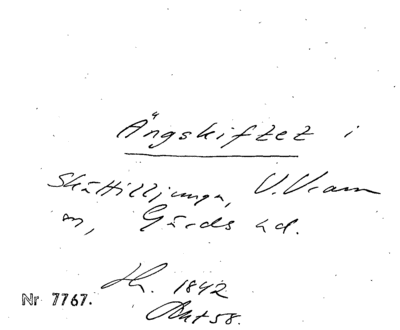 Ängskiftet i
Skättilljunga, V. Vram
sn, Gärds hd.
1842
Akt 58.
Nr 7767.